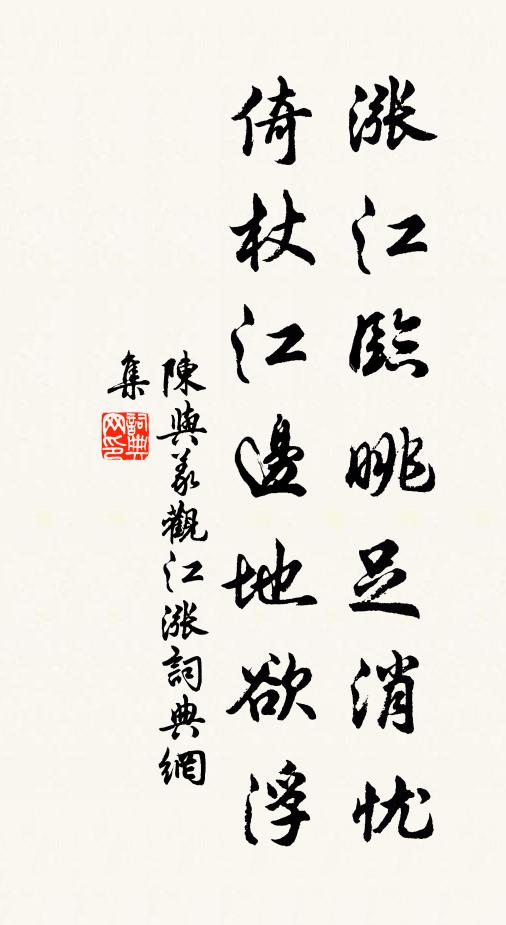 漲江臨眺足消忧
倚杖江邊地欲浮
陳與義觀江漲詞典網
集
詞典
网印